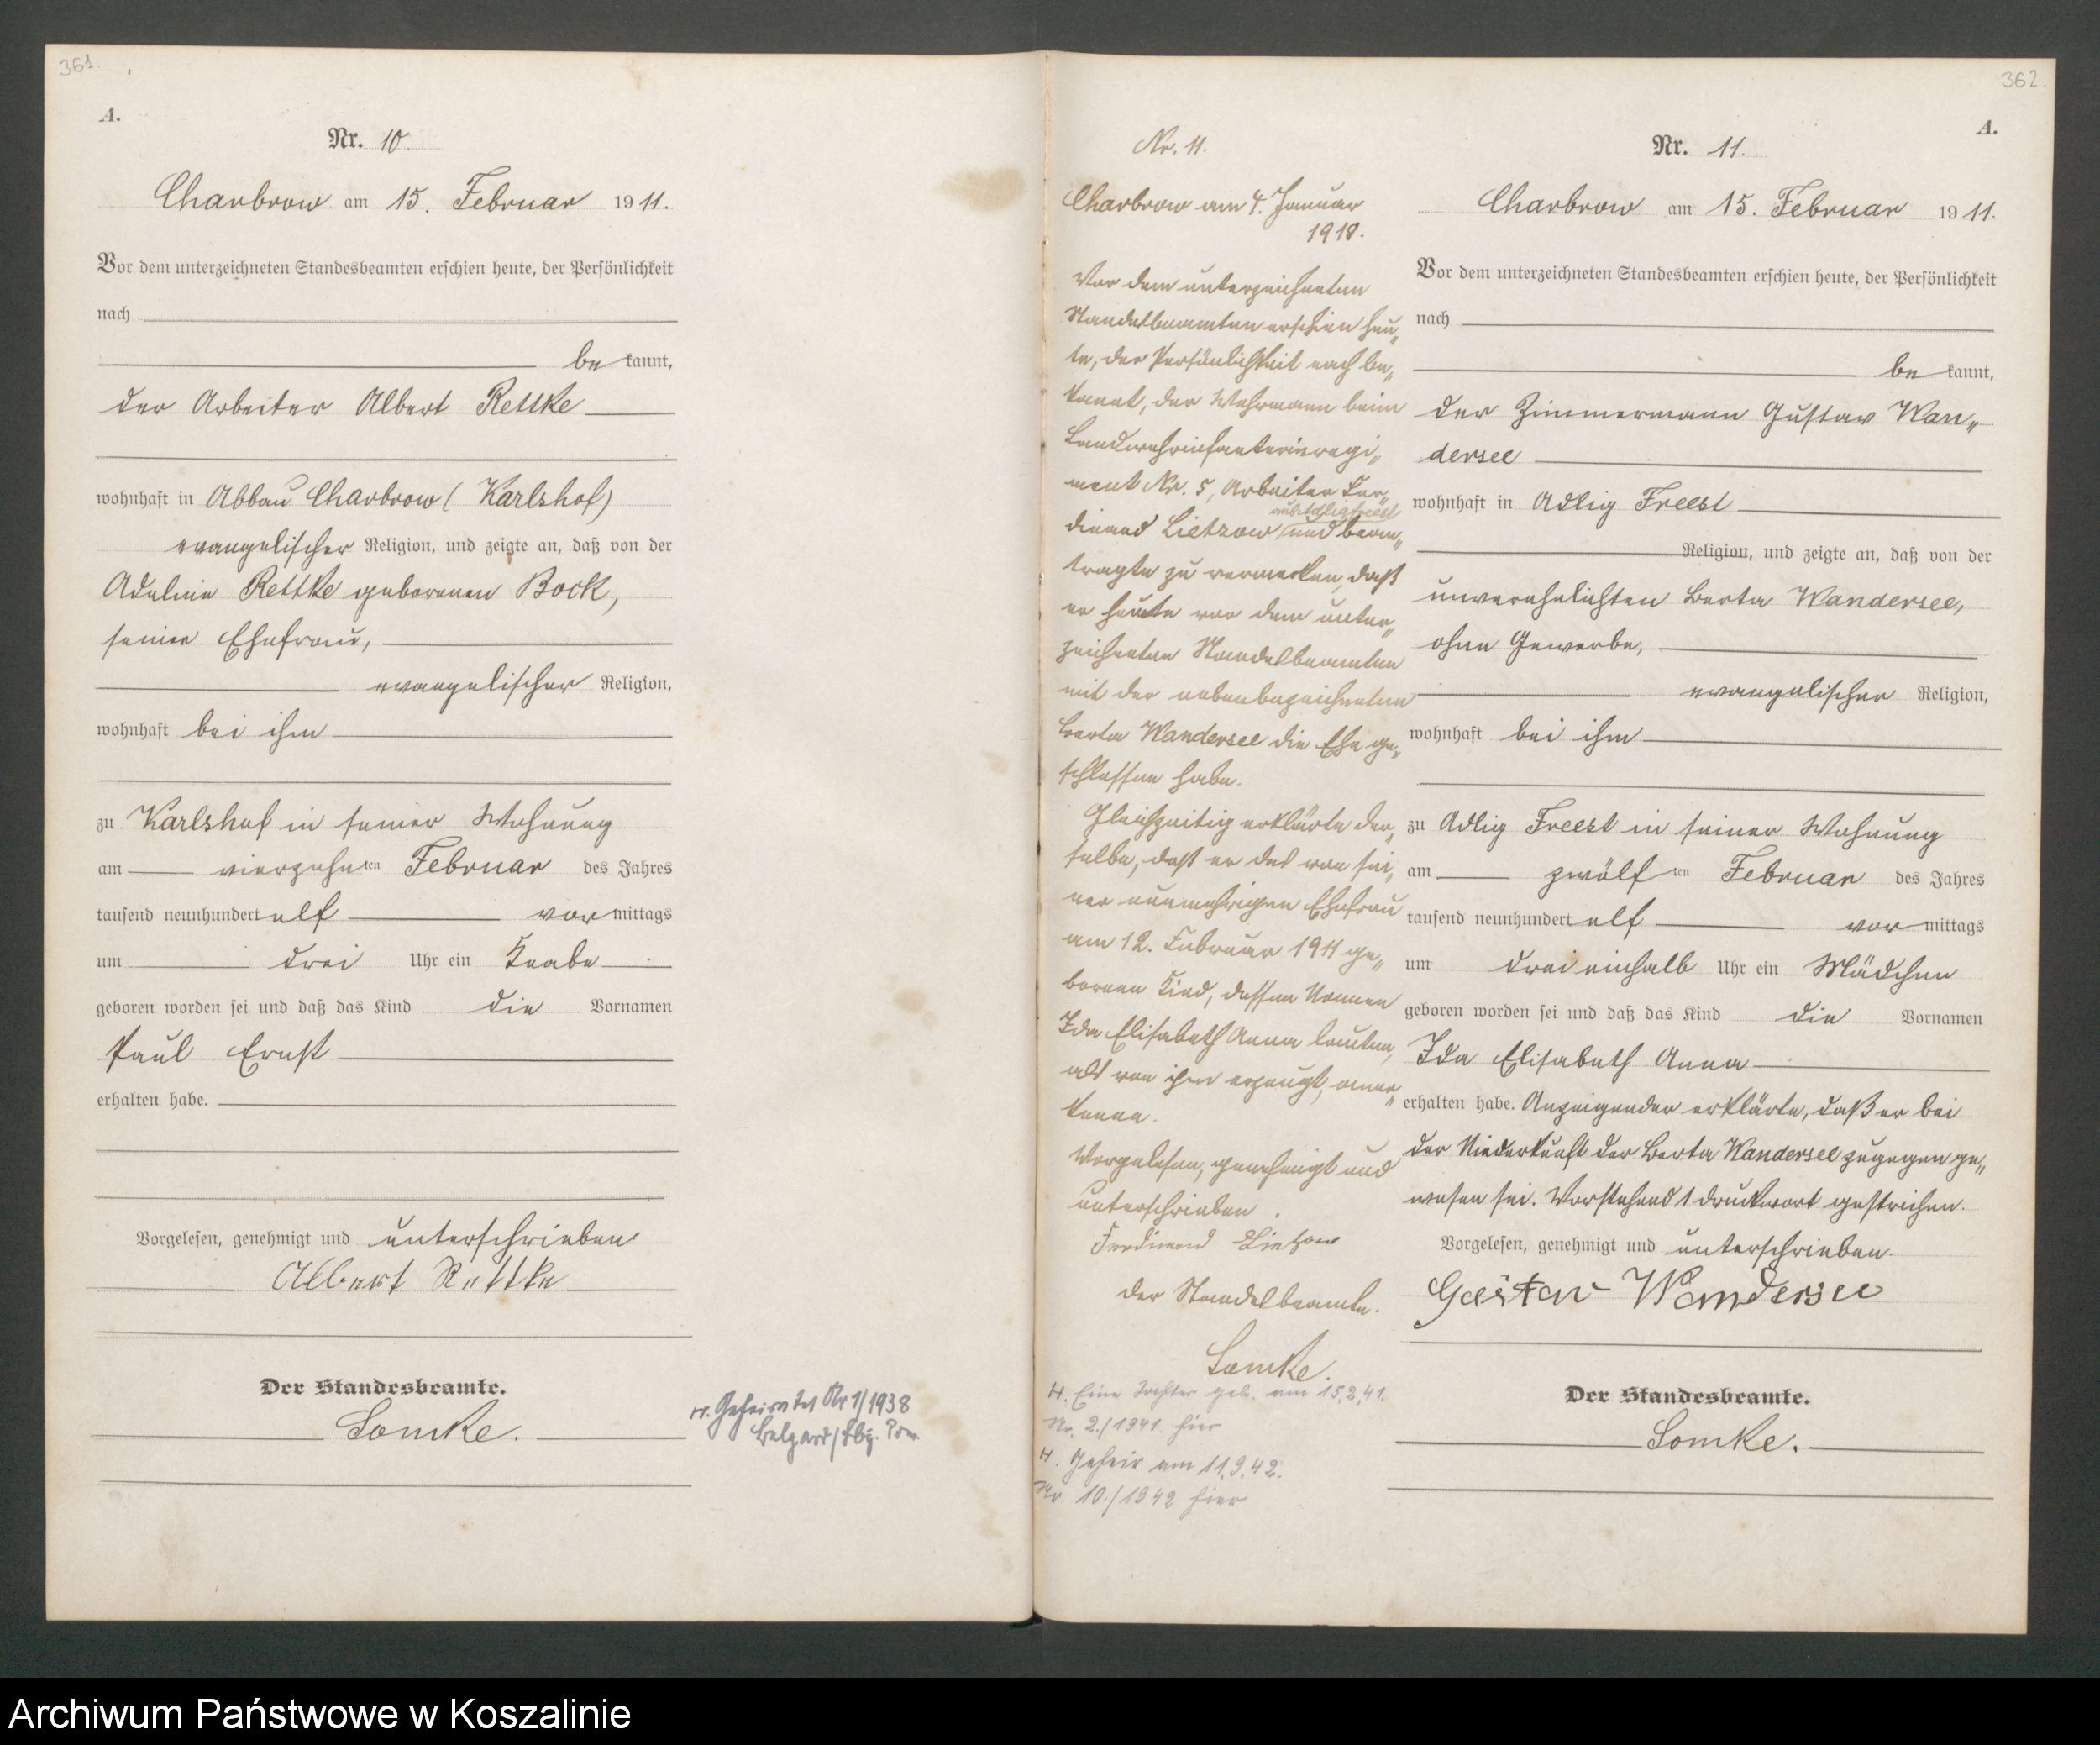 361.
A.
Nr. 10.
Charbrow am 15. Februar 1911.
Vor dem unterzeichneten Standesbeamten erschien heute, der Persönlichkeit
nach
be kannt,
der Arbeiter Albert Rettke
wohnhaft in Abbau Charbrow (Karlshof)
evangelischer Religion, und zeigte an, daß von der
Adeline Rettke geborenen Bock,
seiner Ehefrau,
evangelischer Religion,
wohnhaft bei ihm
zu Karlshof in seiner Wohnung
am vierzehn ten Februar des Jahres
tausend neunhundert elf vor mittags
um drei Uhr ein Knabe
geboren worden sei und daß das Kind die Vornamen
Paul Ernst
erhalten habe.
Vorgelesen, genehmigt und unterschrieben
Albert Rettke
Der Standesbeamte.
Lomke.
H. Geheiratet Nr 1/1938
Belgard/Lbg. Pom.
362.
Nr. 11.
Charbrow am 4. Januar
1918.
Vor dem unterzeichneten
Standesbeamten erschien heu„
te, der Persönlichkeit nach be„
kannt, der Wehrmann beim
Landwehrinfanterieregi„
ment Nr. 5, Arbeiter Fer„
aus Adlig Freest
dinand Lietzow und bean„
tragte zu vermerken, daß
er heute vor dem unter„
zeichneten Standesbeamten
mit der nebenbezeichneten
Berta Wandersee die Ehe ge„
schlossen habe.
Gleichzeitig erklärte der„
selbe, daß er das von sei„
ner nunmehrigen Ehefrau
am 12. Februar 1911 ge„
borene Kind, dessen Namen
Ida Elisabeth Anna lauten,
als von ihm erzeugt, aner„
kenne.
Vorgelesen, genehmigt und
unterschrieben.
Ferdinand Lietzow
Der Standesbeamte.
Lomke.
H. Eine Tochter geb. am 15.2.41.
Nr. 2./1941 hier
H. Geheir am 11.9.42.
Nr 10./1942 hier
A.
Nr. 11.
Charbrow am 15. Februar 1911.
Vor dem unterzeichneten Standesbeamten erschien heute, der Persönlichkeit
nach
be kannt,
der Zimmermann Gustav Wan„
dersee
wohnhaft in Adlig Freest
Religion, und zeigte an, daß von der
unverehelichten Berta Wandersee,
ohne Gewerbe,
evangelischer Religion,
wohnhaft bei ihm
zu Adlig Freest in seiner Wohnung
am zwölf ten Februar des Jahres
tausend neunhundert elf vor mittags
um drei einhalb Uhr ein Mädchen
geboren worden sei und daß das Kind die Vornamen
Ida Elisabeth Anna
erhalten habe. Anzeigender erklärte, daß er bei
der Niederkunft der Berta Wandersee zugegen ge„
wesen sei. Vorstehend 1 Druckwort gestrichen.
Vorgelesen, genehmigt und unterschrieben.
Gustav Wandersee
Der Standesbeamte.
Lomke.
Archiwum Państwowe w Koszalinie